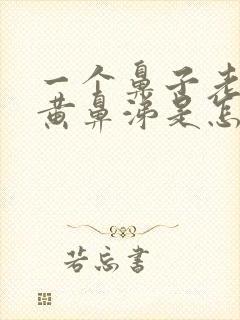 一个鼻子老
黄鼻涕是怎
若忘书